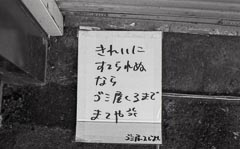 きれいに
すてられぬ
なら
ゴミ屋くるまで
まてや